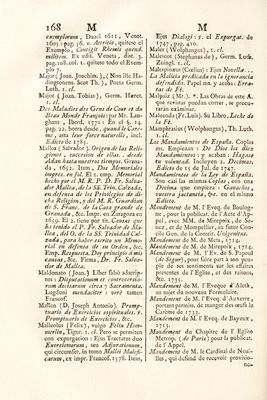 168 M M
exemplorum, Duaci 1611, Venet.
1605; pag. 6. v. Acreitis, quiteso el
Exemplo, Contigit Rhomæ quendi
militem. Ex est. Veneta, dist. 9.
pag. 208. col. 1. quiteso todo el Exem-
plo 7.
Major (Joan. Joachim), (Non ille Ha-
dingtonens. Scot Th.), Poeta Germ.
Luth. 1. cl.
Major (Joan. Tobias), Germ. Haret.
1. cl.
Des Maladies des Gens de Cour et du
Beau Monde François: par Mr. Lan-
ghans, Berni. 1771: En el §. 24.
pag. 21. borra desde, quand le Ca-
rme, asta leur force naturelle, incl.
Edicto de 1785.
Mallea (Salvador), Origen de las Reli-
giones, succesion de ellas, desde
Adan hasta nuestros tiempos. Grana-
da, 1652. Item, Por un Memorial
impres. en fol. El 1. emp. Memorial
hecho por el M. R. P. D. Fr. Salv. de
Mallea, de la SS. Trin. Calzada,
en defensa de los Privilegios de di-
cha Religion, y del M. R. Guardian
de S. Franc. de la Casa grande de
Granada, &c. Impr. en Zaragoza en
1659. El 2. tiene por tit. Causas que
ha tenido el P. Fr. Salvador de Ma-
llea, del O. de la SS. Trinidad Cal-
zada, para haber escrito un Memo-
rial en defensa de su Orden, &c.
Emp. Respuesta. Doy principio á mis
causas, &c. Firma, Dr. Fr. Salva-
dor de Mallea.
Maldonado (Joan.) Liber falsó adscrip-
tus: Disputationum et controversia-
rum decisarum circa 7 Sacramenta.
Lugduni mendaciter: verè tamen
Francof.
Mallen (D. Joseph Antonio) Promp-
tuario de Exercicios espirituales. v.
Promptuario de Exercicios, &c.
Malleolus (Felix), vulgo Felix Hem-
merlin, Tigur. 1. cl. Pero se permiten
con expurgacion: Ejus Tractatus duo
Exorcismorum, seu Adjurationum,
qui circumfer. in tomo Mallei Malefi-
carum, ex impr. Francof. 1578. Item,
Ejus Dialogi 5. ed Expurgat. de
1747. pag. 410.
Maler (Wolphangus), 1. cl.
Maleroot (Stephanus de), Germ. Luth.
Zuingl. 1. cl.
Malespinus (Cœlius): Ejus Novellæ.
La Malicia predicada en la ignorancia
defendida. Papel ms. v. acaba: Erra-
tas de Ff.
Malpaire (Mr.). * Las Obras de este A.
que revistas puedan correr, se procu-
rarán examinar.
Malvonda (Fr. Luis). Su Libro, Leche de
la Ff.
Mamphrasius (Wolphangus), Th. Luth.
1. cl.
Los Mandamientos de España. Coplas
ms. Empiezan: De Dios los diez
Mandamientos: y acaban: Hagase
tu voluntad. Incluyen 11. Decimas.
Edicto de 15 de Jul. de 1804.
Mandamientos de la Ley de España.
Son casi las mismas coplas, con una
Decima que empieza: Ganachos;
nueeta jactancia, &c. en el mismo
Edicto.
Mandement de M. l'Eveq. de Boulog-
ne, pour la publication de l'Acte d'Ap-
pel: avec MM. de Mirepoix, de Se-
nez, et de Montpellier, au futur Con-
cile Gen. de la Constit. Unigenitus.
Mandement de M. de Metz, 1714.
Mandement de M. de Mirepoix, 1714.
Mandement de M. l'Ev. de S. Papoul
(de Segur), pour faire part à son peu-
ple de ses sentimens sur les affaires
presentes de l'Eglise, et des raisons,
&c. 1735.
Mandement de M. l'Eveque d'Aleth,
au sujet du nouveau Formulaire.
Mandement de M. l'Eveq. d'Auxerre,
portant permis. de manger des œufs le
Carême de 1733.
Mandement de M. l'Eveq. de Bayeux,
1715.
Mandement du Chapitre de l'Eglise
Metrop. (de Paris) pour la publicat.
de l'Appel.
Mandement de M. le Cardinal de Noai-
lles, qui defend de recevoir la pre-